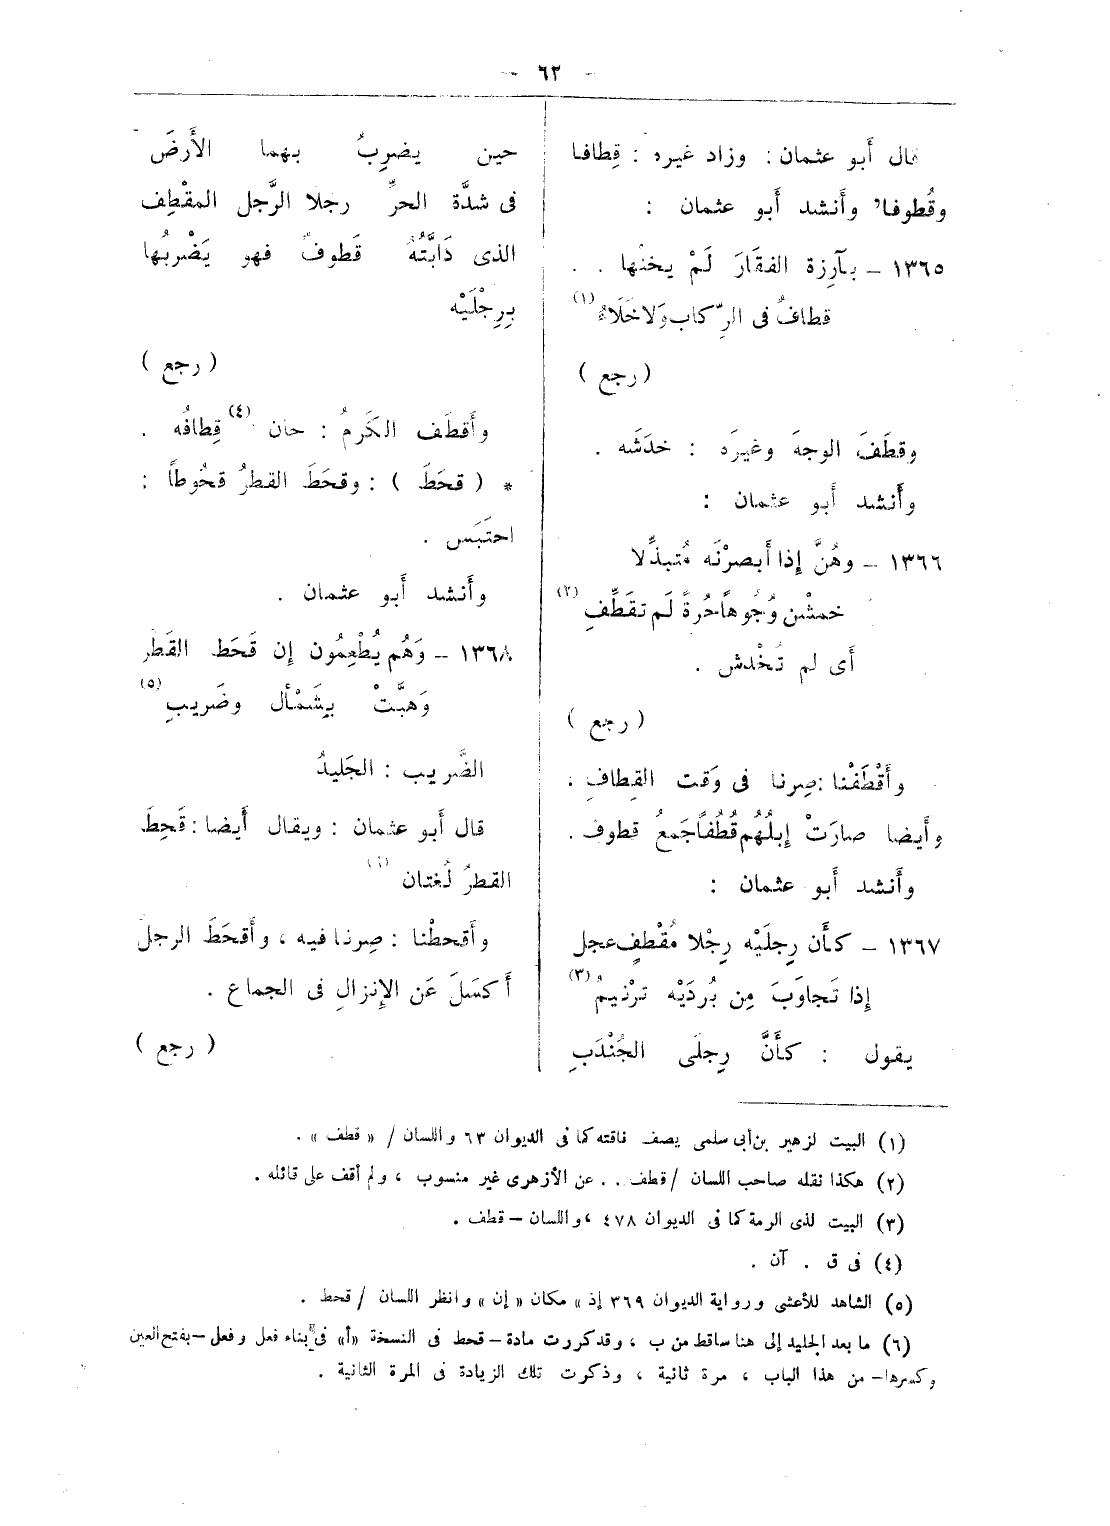 – ٦٢ –
قال أبو عثمان : وزاد غيره : قِطافا
وقُطوفا، وأَنشد أَبو عثمان :
١٣٦٥ – بآرِزة الفقَارَ لَمْ يخنْها . .
قطافٌ فى الرِّكاب وَلا خَلَاءُ (١)
( رجع )
وقطَفَ الوجهَ وغيرَه : خدَشَه .
وأَنشد أَبو عثمان :
١٣٦٦ – وهُنَّ إِذا أَبصرْنَه مُتبذِّلا
خمشْن وُجُوهاً حُرةً لَم تقَطِّفِ (٢)
أَى لم تُخْدش .
( رجع )
وأَقْطَفْنا : صِرنا فى وَقت القِطافِ .
وأَيضا صارَتْ إِبلُهُم قُطُفاً جَمعُ قطوف .
وأَنشد أَبو عثمان :
١٣٦٧ – كأَن رِجلَيْه رِجْلا مُقْطِفٍ عجل
إِذا تَجاوَبَ مِن بُردَيْه ترْنيمُ (٣)
يقول : كأَنَّ رِجلَى الجُنْدَبِ
حين يضرِبُ بهما الأَرضَ
فى شدَّة الحرِّ رجلا الرَّجل المقْطِف
الذى دَابَّتُهُ قَطوفٌ فهو يَضْرِبُها
بِرِجْلَيْه
( رجع )
وأَقطَف الكَرمُ : حان (٤) قِطافُه .
* ( قحَطَ ) : وقحَطَ القطرُ قحُوطاً :
احتَبَس .
وأَنشد أَبو عثمان .
١٣٦٨ – وَهُم يُطْعِمُون إِن قَحَط القَطر
وَهبَّتْ بِشَمْأَل وضَريبِ (٥)
الضَّريب : الجَليدُ
قال أَبو عثمان : ويقال أَيضا : قَحِطَ
القطرُ لُغتان (٦)
وأَقحطْنا : صِرنا فيه ، وأَقحَطَ الرجل
أَكسَلَ عَن الإِنزالِ فى الجماع .
( رجع )
(١) البيت لزهير بن أبى سلمى يصف ناقته كما فى الديوان ٦٣ واللسان / « قطف » .
(٢) هكذا نقله صاحب اللسان / قطف . . عن الأزهرى غير منسوب ، ولم أقف على قائله .
(٣) البيت لذى الرمة كما فى الديوان ٤٧٨ ، واللسان – قطف .
(٤) فى ق . آن .
(٥) الشاهد للأعشى ورواية الديوان ٣٦٩ إذ » مكان « إن » وانظر اللسان / قحط .
(٦) ما بعد الجليد إلى هنا ساقط من ب ، وقد كررت مادة – قحط فى النسخة « أ » فى بناء فعل وفعل – بفتح العين
وكسرها – من هذا الباب ، مرة ثانية ، وذكرت تلك الزيادة فى المرة الثانية .